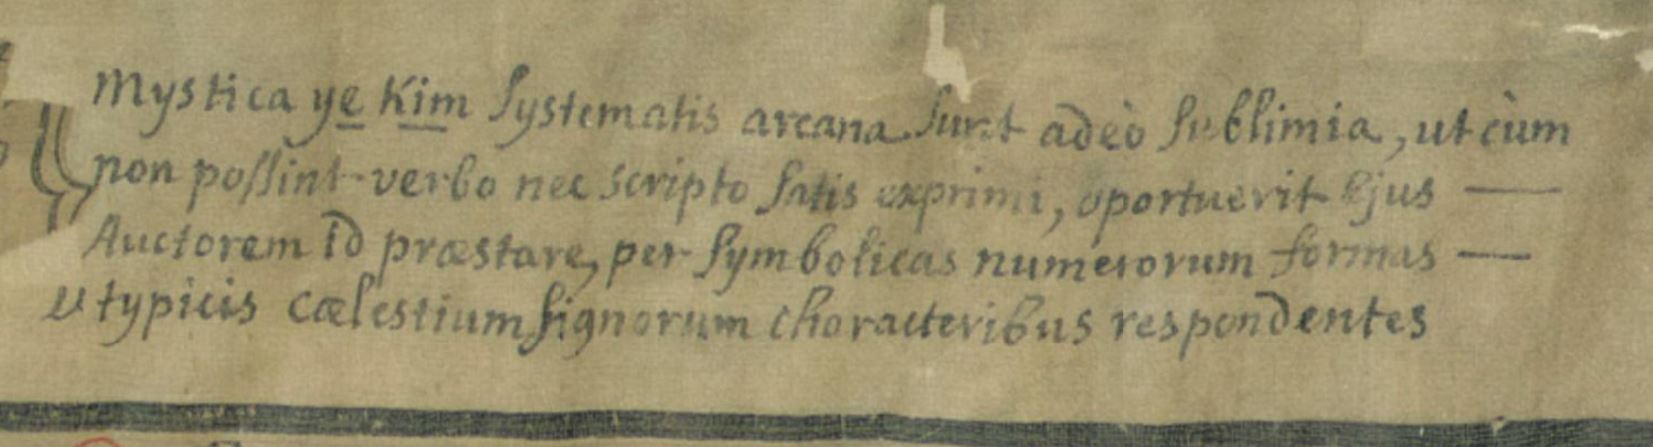 Mystica ye Kim Systematis arcana sunt adeò sublimia, ut cùm
non possint verbo nec scripto satis exprimi, oportuerit Ejus —
Auctorem id præstare, per symbolicas numerorum formas —
typicis cælestium signorum characteribus respondentes